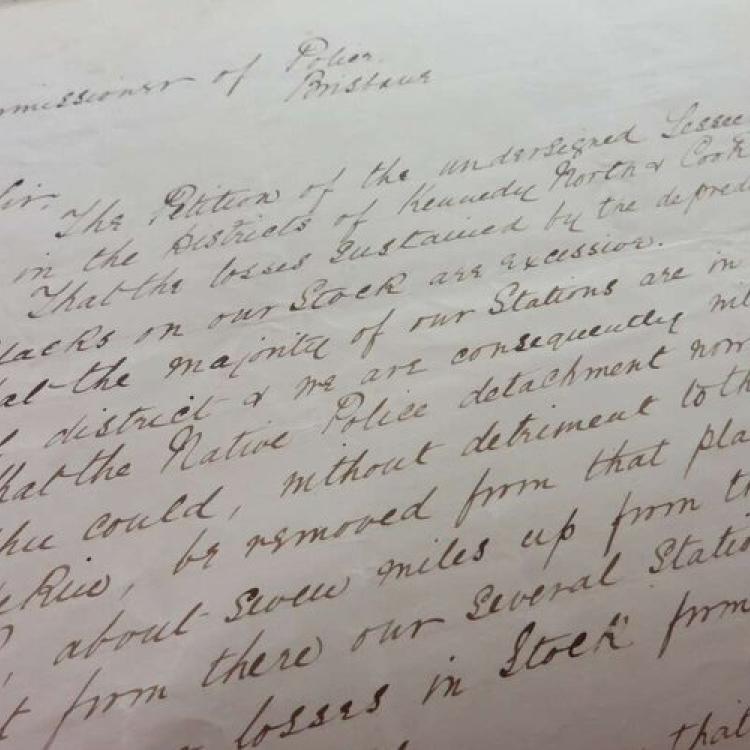 mmissioner of Police
Brisbane
Sir,
The Petition of the undersigned Lessee
in the Districts of Kennedy North & Cook
That the losses sustained by the depred
lacks on our Stock are excessive.
hat the majority of our Stations are in
district & we are consequently
hat the Native Police detachment now
could, without detriment to th
be removed from that pla
about seven miles up from th
t from there our several Statio
losses in Stock from
that